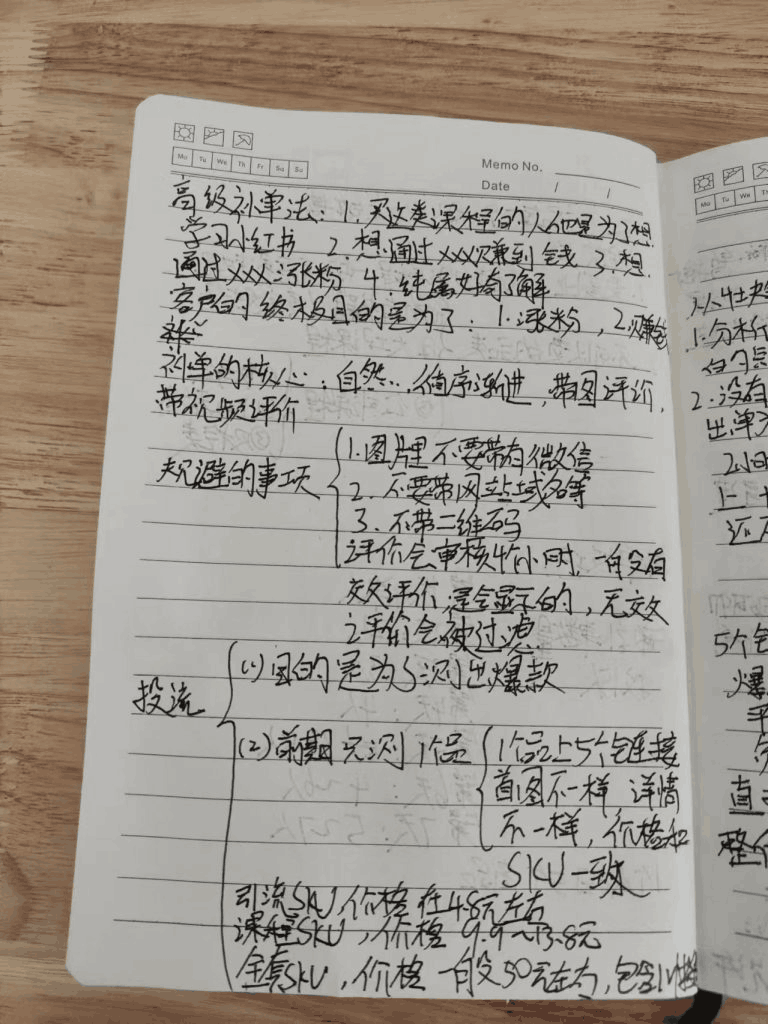 Memo No.
Date / /
Mo Tu We Th Fr Sa Su
高级补单法: 1. 买这类课程的人他是为了想
学习小红书 2. 想通过xxx赚到钱 3. 想
通过xxx涨粉 4. 纯属好奇了解
客户的终极目的是为了: 1. 涨粉, 2. 赚钱
补单的核心: 自然..., 循序渐进, 带图评价,
带视频评价
规避的事项
1. 图片里不要带有微信
2. 不要带网站域名等
3. 不带二维码
评价会审核4个小时, 一般没有
效评价, 是会显示的, 无效
评价会被过滤
投流
(1) 目的是为了测出爆款
(2) 前期只测1个品
1个品上5个链接
首图不一样 详情
不一样, 价格和
SKU一致
引流SKU, 价格在4.8元左右
课程SKU, 价格 9.9~13.8元
全套SKU, 价格一般50元左右, 包含
Mo Tu We Th
1. 分析
2. 没有
出单
2小时
还
5个
爆
直
整个